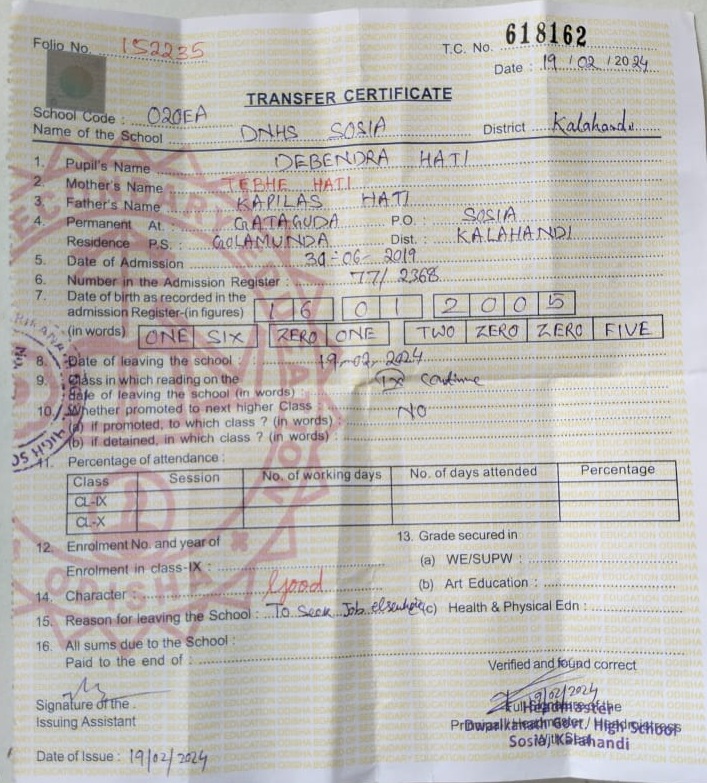 Folio No. 152235
T.C. No. 618162
Date : 19/02/2024
TRANSFER CERTIFICATE
School Code : 020EA
Name of the School DNHS SOSIA District Kalahandi
1. Pupil's Name DEBENDRA HATI
2. Mother's Name TEBHE HATI
3. Father's Name KAPILAS HATI
4. Permanent At. GATAGUDA P.O. : SOSIA
Residence P.S. : GOLAMUNDA Dist. : KALAHANDI
5. Date of Admission 30-06-2019
6. Number in the Admission Register : 77/2368
7. Date of birth as recorded in the
admission Register-(in figures) 1 6 0 1 2 0 0 5
(in words) ONE SIX ZERO ONE TWO ZERO ZERO FIVE
8. Date of leaving the school : 19-02-2024
9. Class in which reading on the
date of leaving the school (in words) : IX
10. Whether promoted to next higher Class : NO
(a) if promoted, to which class ? (in words) :
(b) if detained, in which class ? (in words) :
11. Percentage of attendance :
Class Session No. of working days No. of days attended Percentage
CL-IX
CL-X
12. Enrolment No. and year of
Enrolment in class-IX :
13. Grade secured in
(a) WE/SUPW :
(b) Art Education :
14. Character : Good
15. Reason for leaving the School : To Seek Job elsewhere (c) Health & Physical Edn :
16. All sums due to the School :
Paid to the end of :
Verified and found correct
19/02/2024
Signature of the
Issuing Assistant
Full Signature of the
Principal / Headmaster / Headmistress
With Seal
Headmaster
Dwarikanath Govt. High School
Sosia, Kalahandi
Date of Issue : 19/02/2024